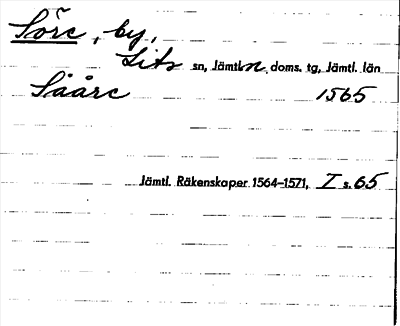 Söre, by,
Lits sn, Jämtl n. doms. tg, Jämtl. län
Sååre 1565
Jämtl. Räkenskaper 1564-1571, I s. 65